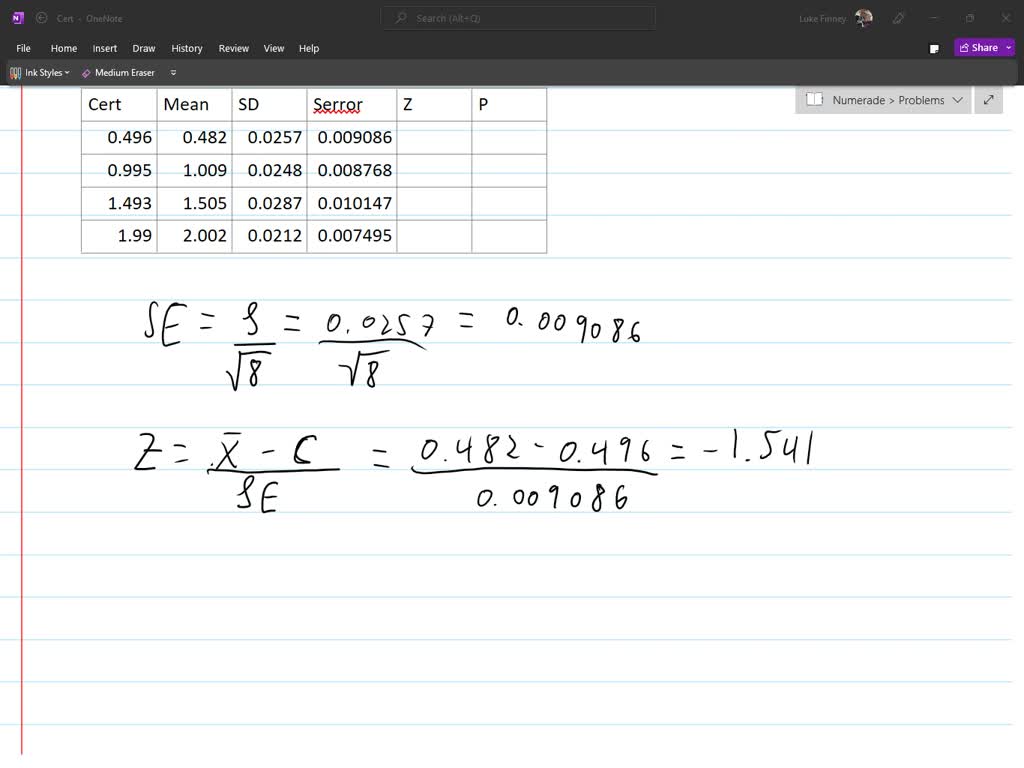 Cert - OneNote
Search (Alt+Q)
Luke Finney
File Home Insert Draw History Review View Help
Share
Ink Styles Medium Eraser
Numerade > Problems
Cert Mean SD Serror Z P
0.496 0.482 0.0257 0.009086
0.995 1.009 0.0248 0.008768
1.493 1.505 0.0287 0.010147
1.99 2.002 0.0212 0.007495
SE = S/√8 = 0.0257/√8 = 0.009086
Z = x̄ - C/SE = 0.482 - 0.496/0.009086 = -1.541